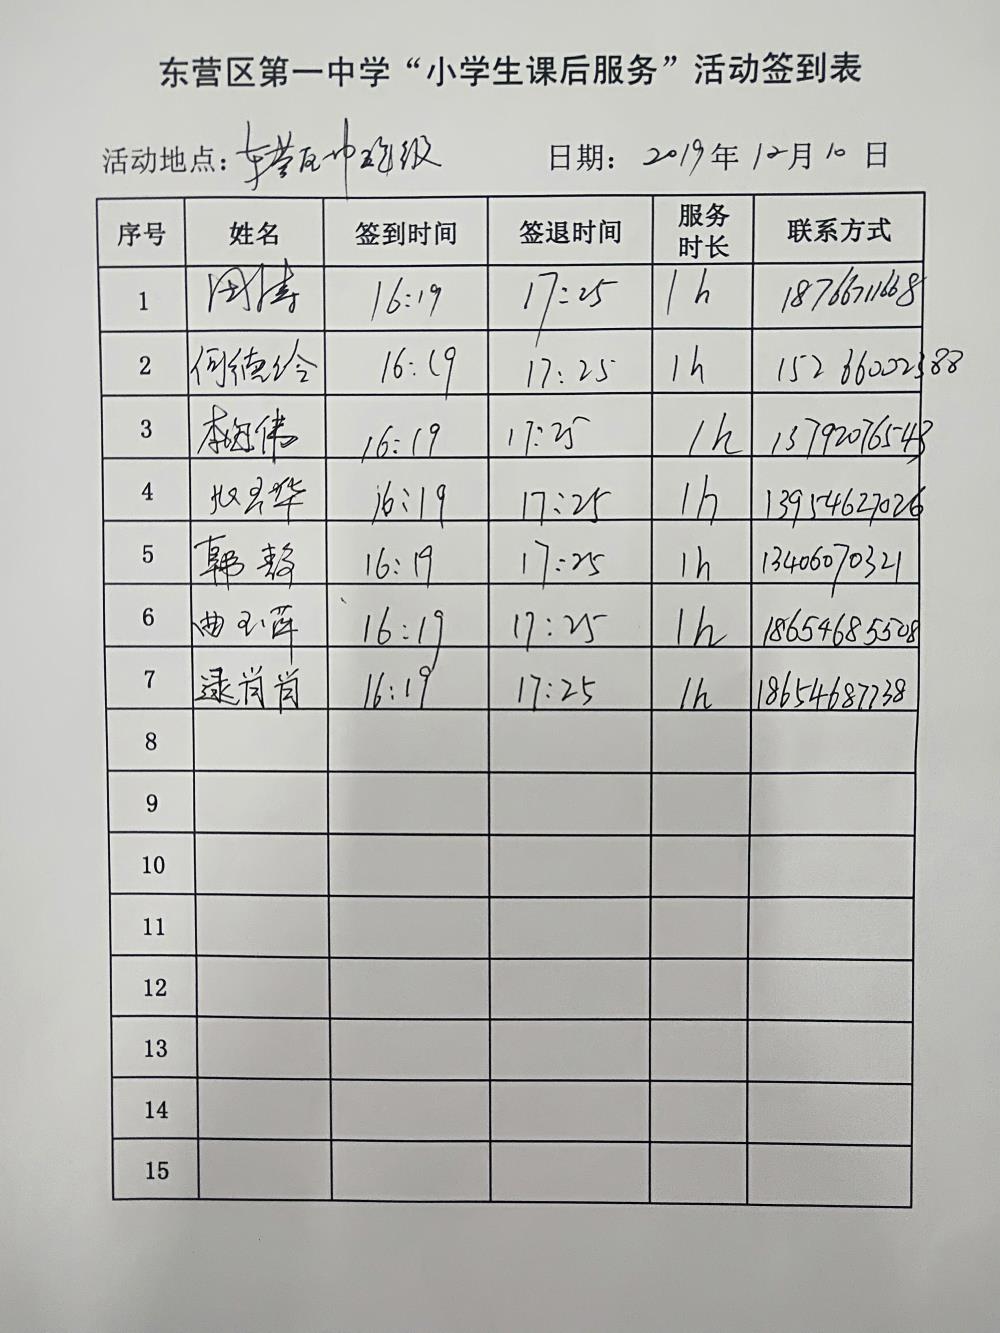 东营区第一中学“小学生课后服务”活动签到表
活动地点: 东营区一中五年级 日期: 2019年12月10日
序号 姓名 签到时间 签退时间 服务时长 联系方式
1 周涛 16:19 17:25 1h 18766711668
2 何德玲 16:19 17:25 1h 15266002388
3 16:19 17:25 1h 13792076543
4 16:19 17:25 1h 13954627026
5 韩静 16:19 17:25 1h 13406070321
6 曲玉萍 16:19 17:25 1h 18654685508
7 逯肖肖 16:19 17:25 1h 18654687738
8
9
10
11
12
13
14
15